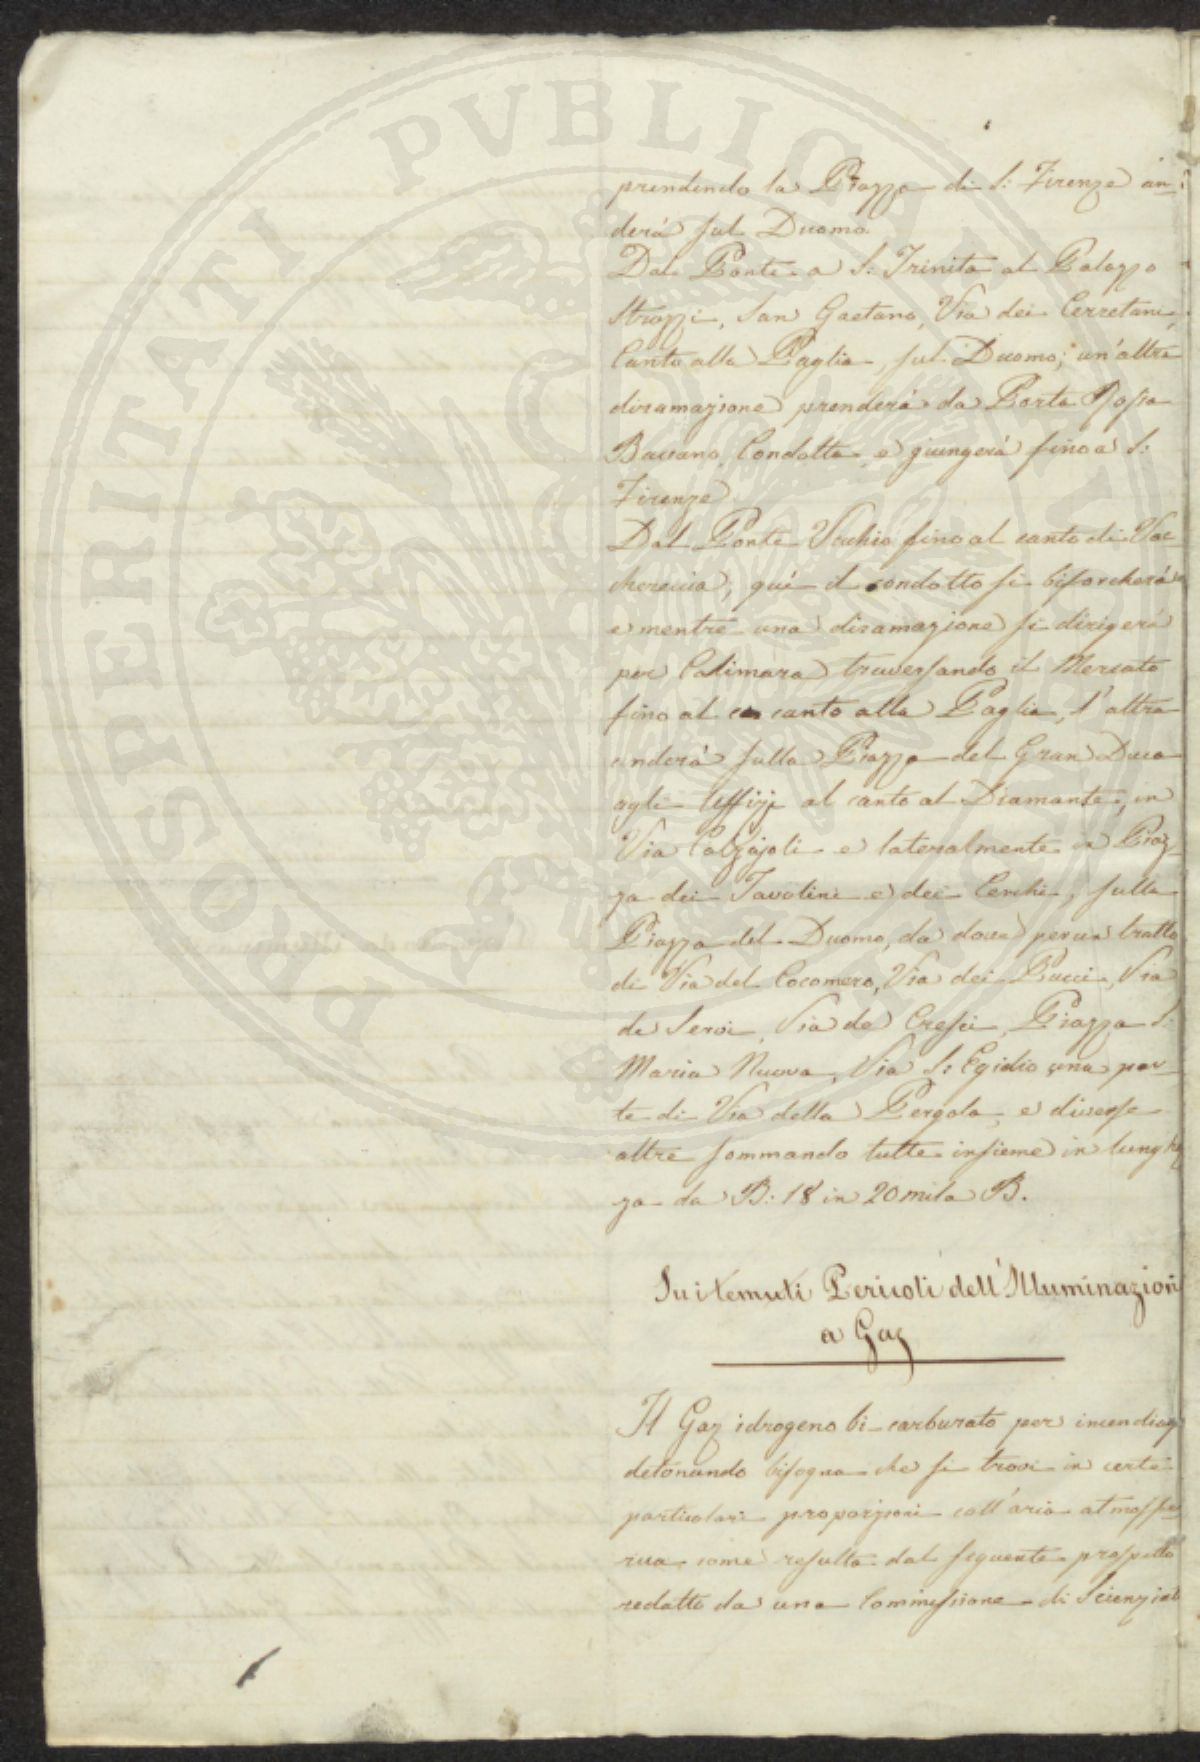 prendendo la Piazza di S: Firenze an-
derà sul Duomo.
Dal Ponte a S: Trinita al Palazzo
Strozzi, San Gaetano, Via dei Cerretani,
Canto alla Paglia, sul Duomo; un'altra
diramazione prenderà da Porta Rossa
Baccano, Condotta, e giungerà fino a S:
Firenze
Dal Ponte Vecchio fino al canto di Vac-
chereccia; quì il condotto si biforcherà
e mentre una diramazione si dirigerà
per Calimara traversando il Mercato
fino al canto alla Paglia, l'altra
anderà sulla Piazza del Gran Duca
agli Uffizj al canto al Diamante, in
Via Calzajoli e lateralmente in Piaz-
za dei Tavolini e dei Cerchi, sulla
Piazza del Duomo, da dove per un tratto
di Via del Cocomero, Via dei Pucci, Via
de Servi, Via de Cresci, Piazza S:
Maria Nuova, Via S: Egidio una par-
te di Via della Pergola, e diverse
altre sommando tutte insieme in lunghez
za da B: 18 in 20 mila B.
Sui temuti Pericoli dell'Illuminazion
a Gaz
Il Gaz idrogeno bi-carburato per incendiar
detonando bisogna che si trovi in certe
particolari proporzioni coll'aria atmosfe
rica come resulta dal seguente prospetto
redatto da una Commissione di Scienziati
PROSPERITATI PVBLICAE